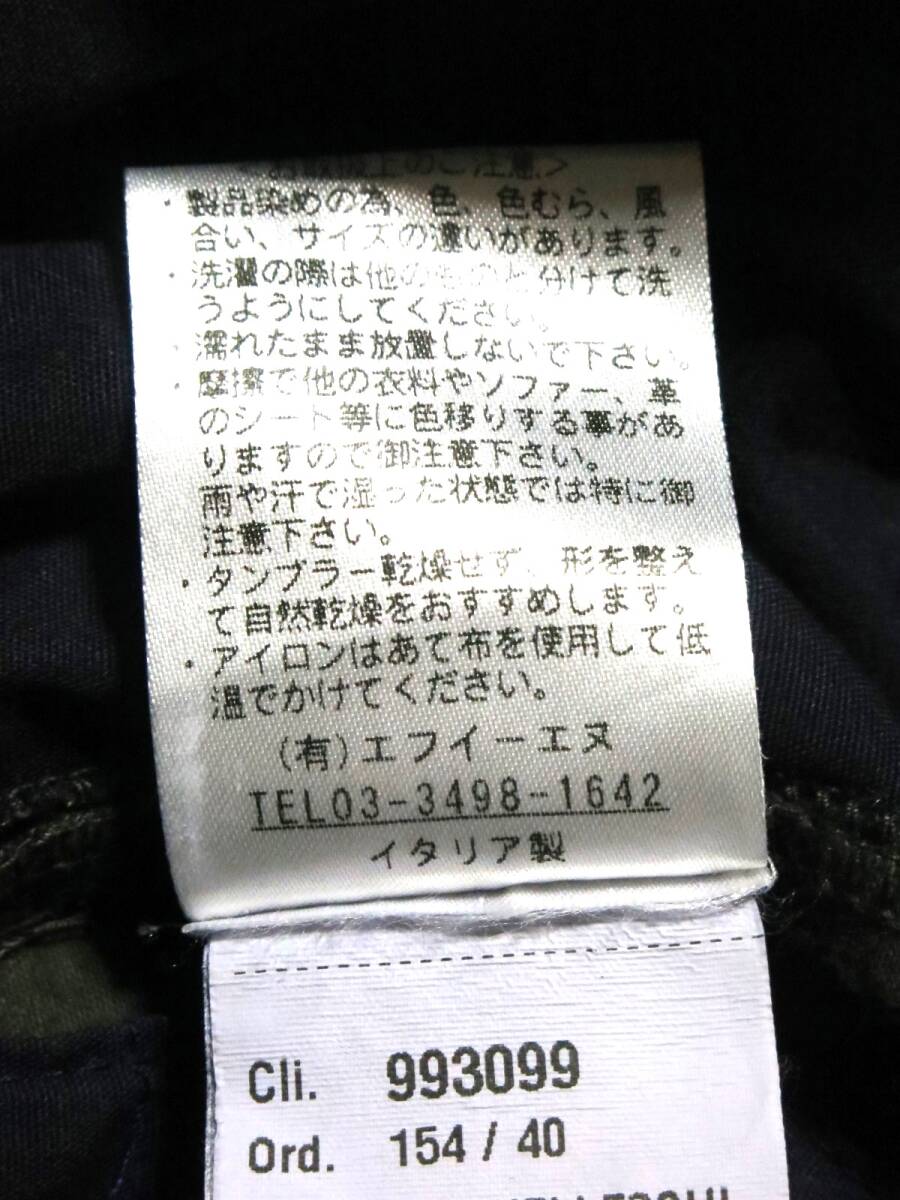 <お取扱上のご注意>
・製品染めの為、色、色むら、風
合い、サイズの違いがあります。
・洗濯の際は他のものと分けて洗
うようにしてください。
・濡れたまま放置しないで下さい。
・摩擦で他の衣料やソファー、革
のシート等に色移りする事があ
りますので御注意下さい。
雨や汗で湿った状態では特に御
注意下さい。
・タンブラー乾燥せず、形を整え
て自然乾燥をおすすめします。
・アイロンはあて布を使用して低
温でかけてください。
(有)エフイーエヌ
TEL03-3498-1642
イタリア製
Cli. 993099
Ord. 154 / 40